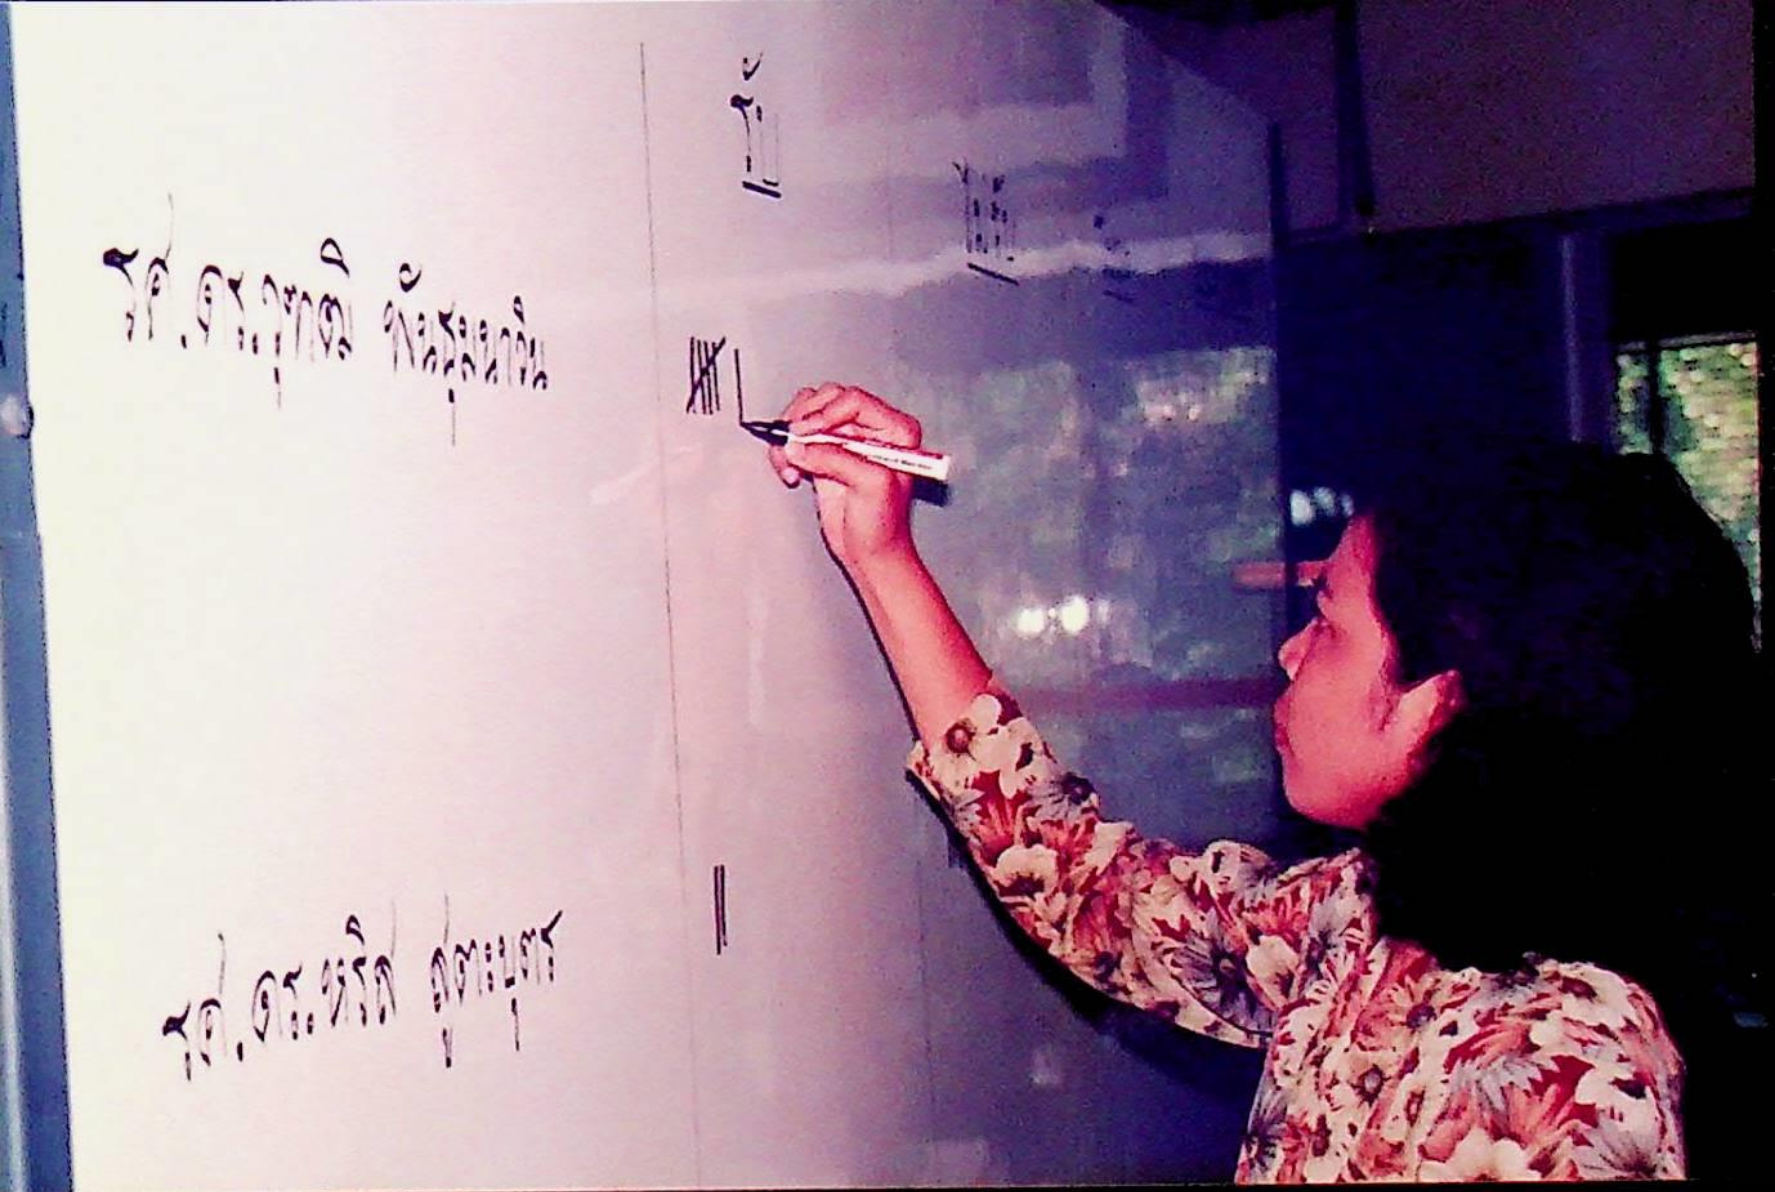 รับ
ไม่รับ
รศ.ดร.วุฑฒิ พันธุมนาวิน
รศ.ดร.หริส สูตะบุตร